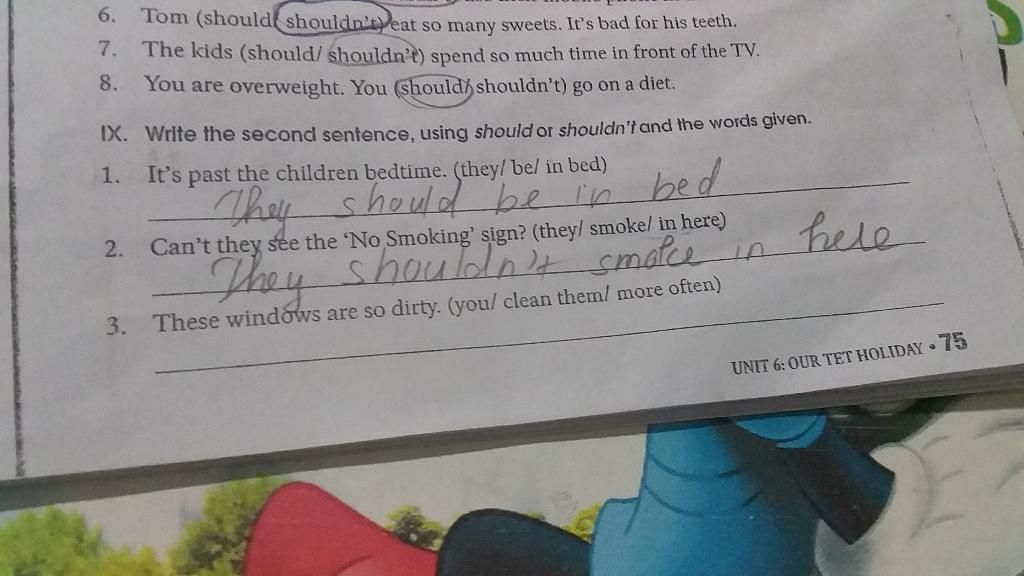 6. Tom (should/ shouldn't) eat so many sweets. It's bad for his teeth.
7. The kids (should/ shouldn't) spend so much time in front of the TV.
8. You are overweight. You (should/ shouldn't) go on a diet.
IX. Write the second sentence, using should or shouldn't and the words given.
1. It's past the children bedtime. (they/ be/ in bed)
They should be in bed
2. Can't they see the 'No Smoking' sign? (they/ smoke/ in here)
They shouldn't smoke in here
3. These windows are so dirty. (you/ clean them/ more often)
UNIT 6: OUR TET HOLIDAY • 75